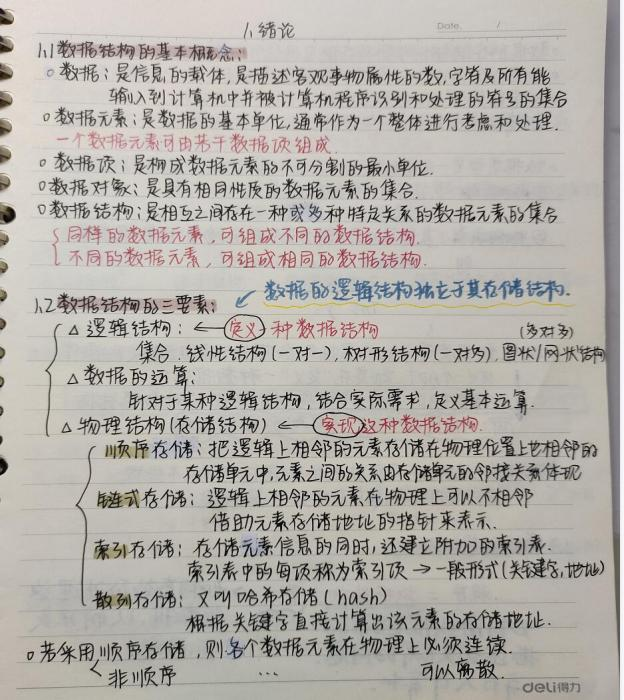 1、绪论
Date. /
1.1 数据结构的基本概念：
○ 数据：是信息的载体，是描述客观事物属性的数，字符及所有能
输入到计算机中并被计算机程序识别和处理的符号的集合
○ 数据元素：是数据的基本单位，通常作为一个整体进行考虑和处理.
一个数据元素可由若干数据项组成.
○ 数据项：是构成数据元素的不可分割的最小单位.
○ 数据对象：是具有相同性质的数据元素的集合.
○ 数据结构：是相互之间存在一种或多种特定关系的数据元素的集合
同样的数据元素，可组成不同的数据结构.
不同的数据元素，可组成相同的数据结构.
1.2 数据结构的三要素： ↙ 数据的逻辑结构独立于其存储结构.
△ 逻辑结构：← 定义一种数据结构 (多对多)
集合.线性结构(一对一)，树形结构(一对多)，图状/网状结构
△ 数据的运算：
针对于某种逻辑结构，结合实际需求，定义基本运算.
△ 物理结构(存储结构) ← 实现这种数据结构.
顺序存储：把逻辑上相邻的元素存储在物理位置上也相邻的
存储单元中，元素之间的关系由存储单元的邻接关系体现
链式存储：逻辑上相邻的元素在物理上可以不相邻
借助元素存储地址的指针来表示.
索引存储：存储元素信息的同时，还建立附加的索引表.
索引表中的每项称为索引项 → 一般形式(关键字，地址)
散列存储：又叫哈希存储(hash)
根据关键字直接计算出该元素的存储地址.
○ 若采用顺序存储，则各个数据元素在物理上必须连续.
非顺序 … 可以离散.
deli得力